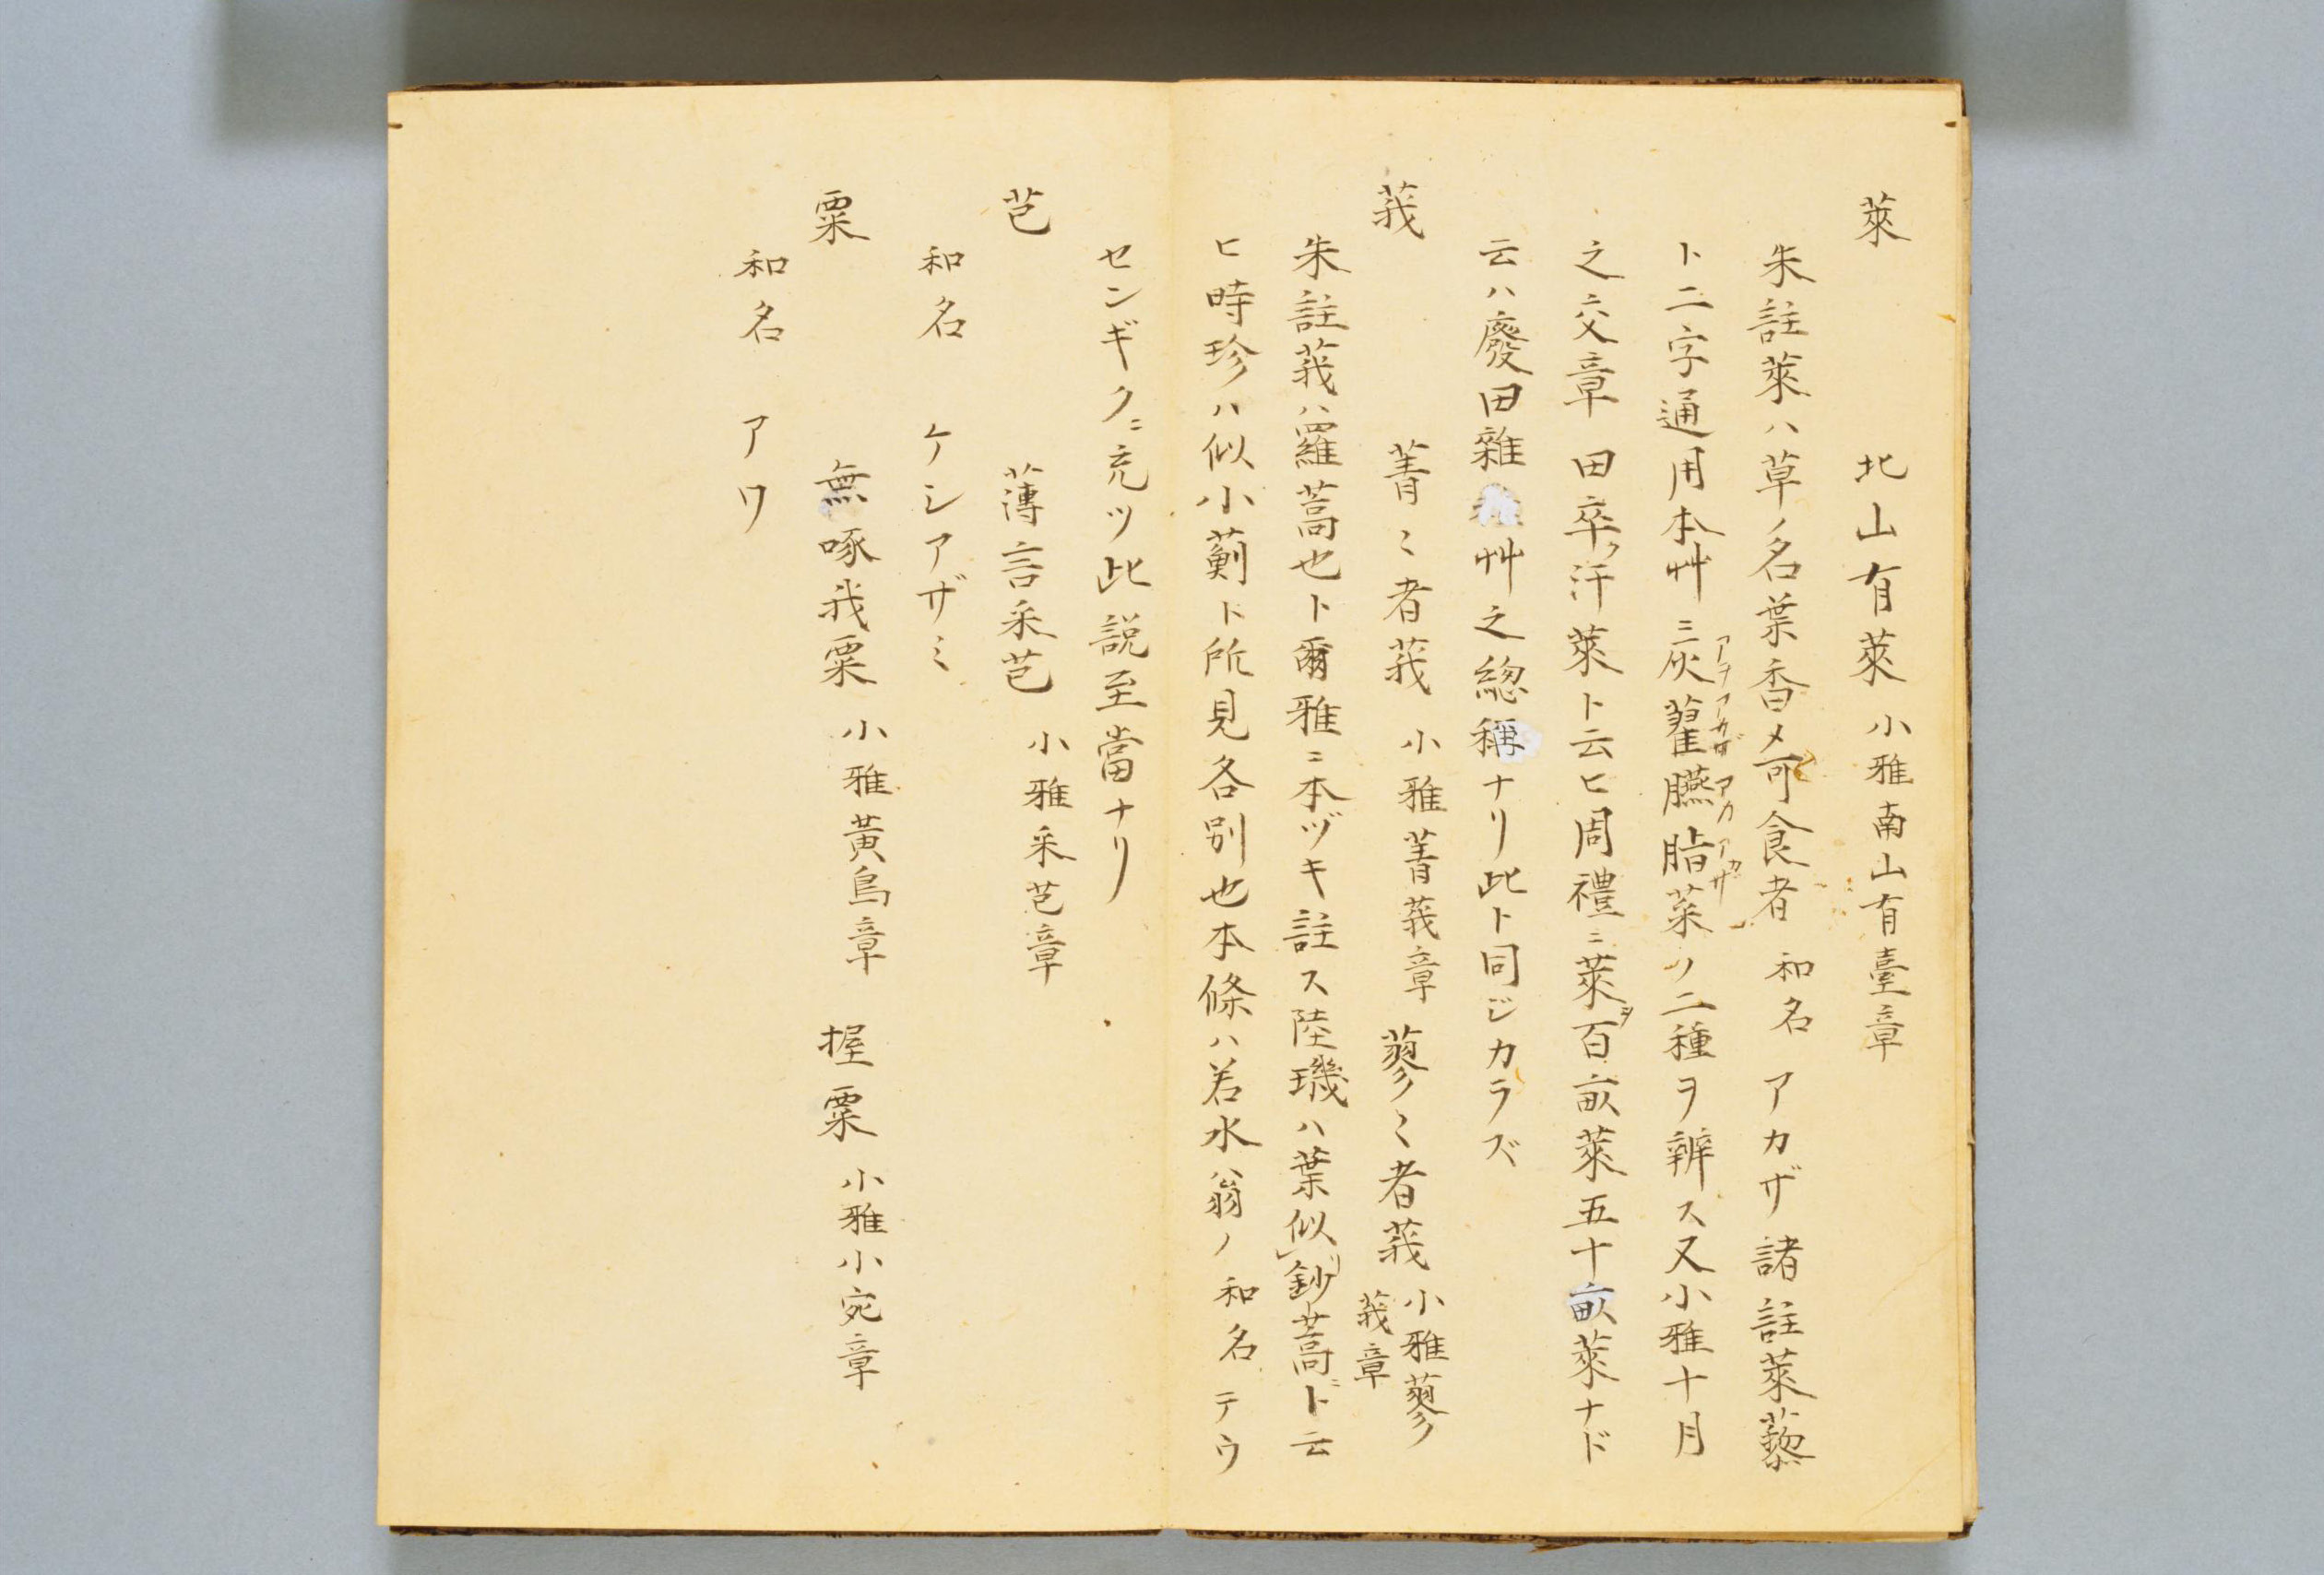 萊　北山有萊 小雅南山有臺章
朱註萊ハ草ノ名葉香〆可食者 和名 アカザ 諸註萊藜
ト二字通用本艸ニ灰藋臙脂菜ノ二種ヲ辨ス又小雅十月
之交章田卒ク汗萊ト云ヒ周禮ニ萊ヲ百畝萊五十畝萊ナド
云ハ廢田雜艸之總稱ナリ此ト同ジカラズ
莪　菁〻者莪 小雅菁莪章 蓼〻者莪 小雅蓼莪章
朱註莪ハ羅蒿也ト爾雅ニ本ヅキ註ス陸璣ハ葉似鈔蒿ト云
ヒ時珍ハ似小薊ト所見各別也本條ハ若水翁ノ和名テウ
センギクニ充ツ此説至當ナリ
芑　薄言采芑 小雅采芑章
和名 ケシアザミ
粟　無啄我粟 小雅黃鳥章 握粟 小雅小宛章
和名 アワ